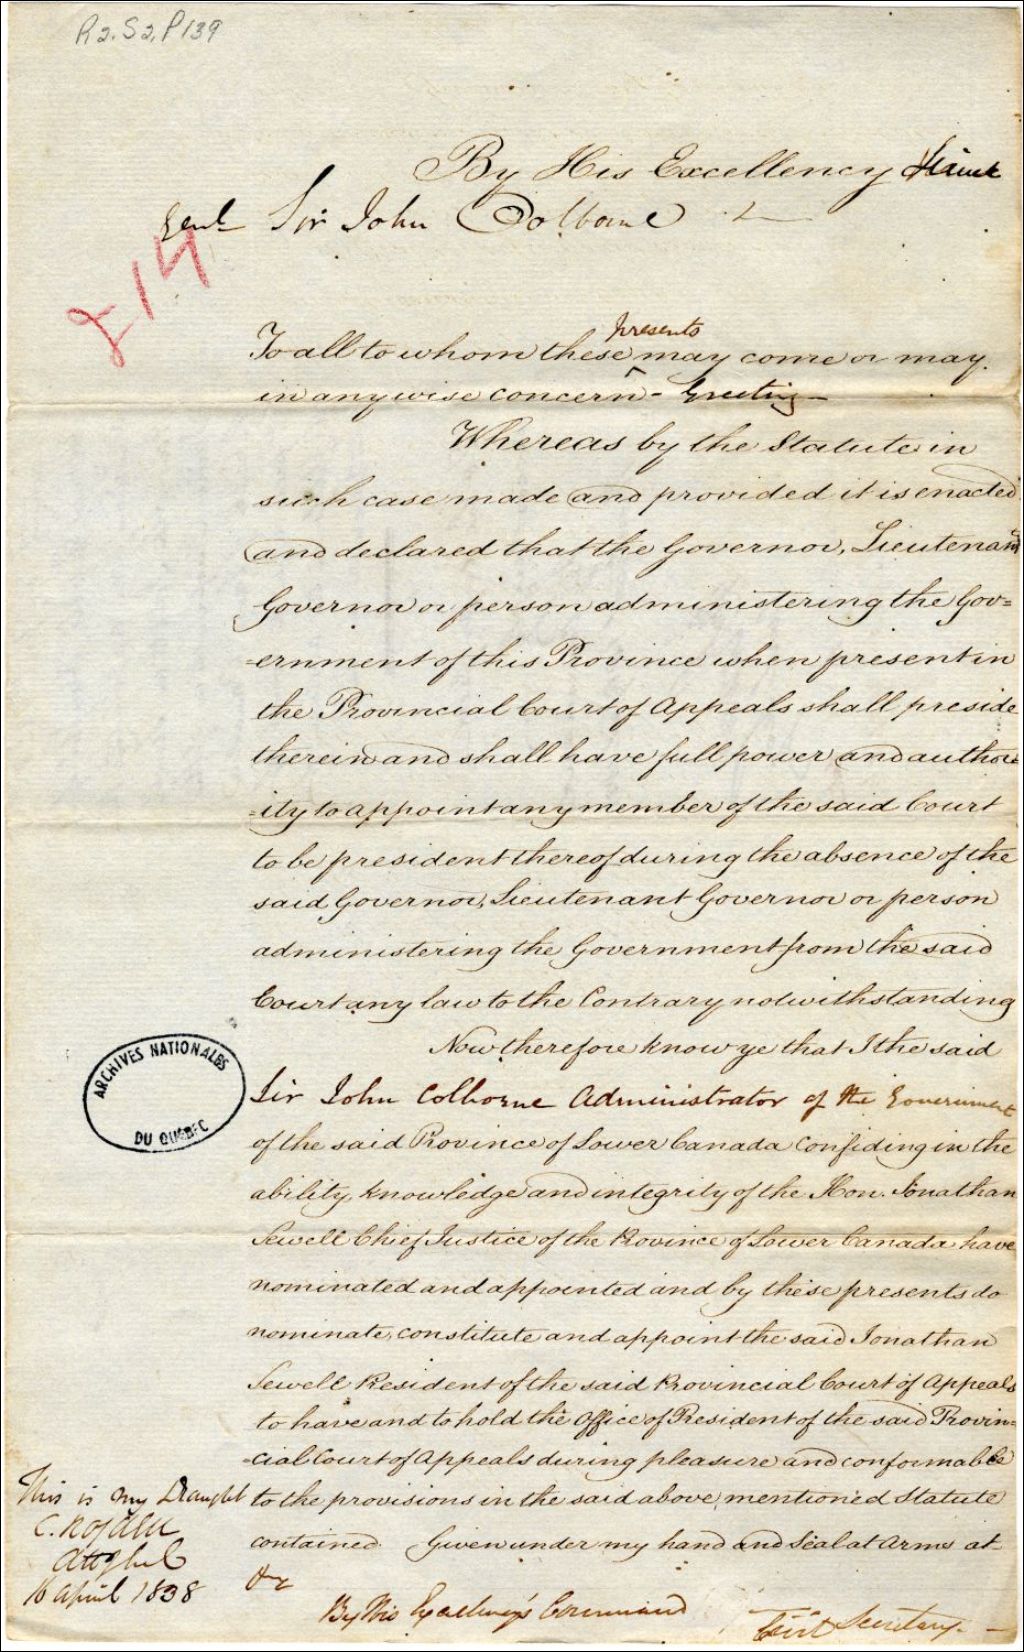 R2. S2, P139
By His Excellency Lieut
Genl Sir John Colborne &c
£14
presents
To all to whom these ^ may come or may.
in anywise concern - Greeting -
Whereas by the Statute in
such case made and provided it is enacted
and declared that the Governor, Lieutenant
Governor or person administering the Gov=
=ernment of this Province when present in
the Provincial Court of Appeals shall preside
therein and shall have full power and author=
=ity to appoint any member of the said Court
to be president thereof during the absence of the
said Governor, Lieutenant Governor or person
administering the Government from the said
Court any law to the Contrary notwithstanding
Now therefore know ye that I the said
ARCHIVES NATIONALES
DU QUÉBEC
Sir John Colborne Administrator of the Government
of the said Province of Lower Canada Confiding in the
ability, knowledge and integrity of the Hon. Jonathan
Sewell Chief Justice of the Province of Lower Canada have
nominated and appointed and by these presents do
nominate, constitute and appoint the said Jonathan
Sewell President of the said Provincial Court of Appeals
to have and to hold the Office of President of the said Provin=
=cial Court of Appeals during pleasure and conformable
to the provisions in the said above mentioned Statute
contained. Given under my hand and Seal at Arms at
&c
This is my Draught
C. R Ogden
Atty Genl
16 April 1838
By His Excellency's Command
Civil Secretary.